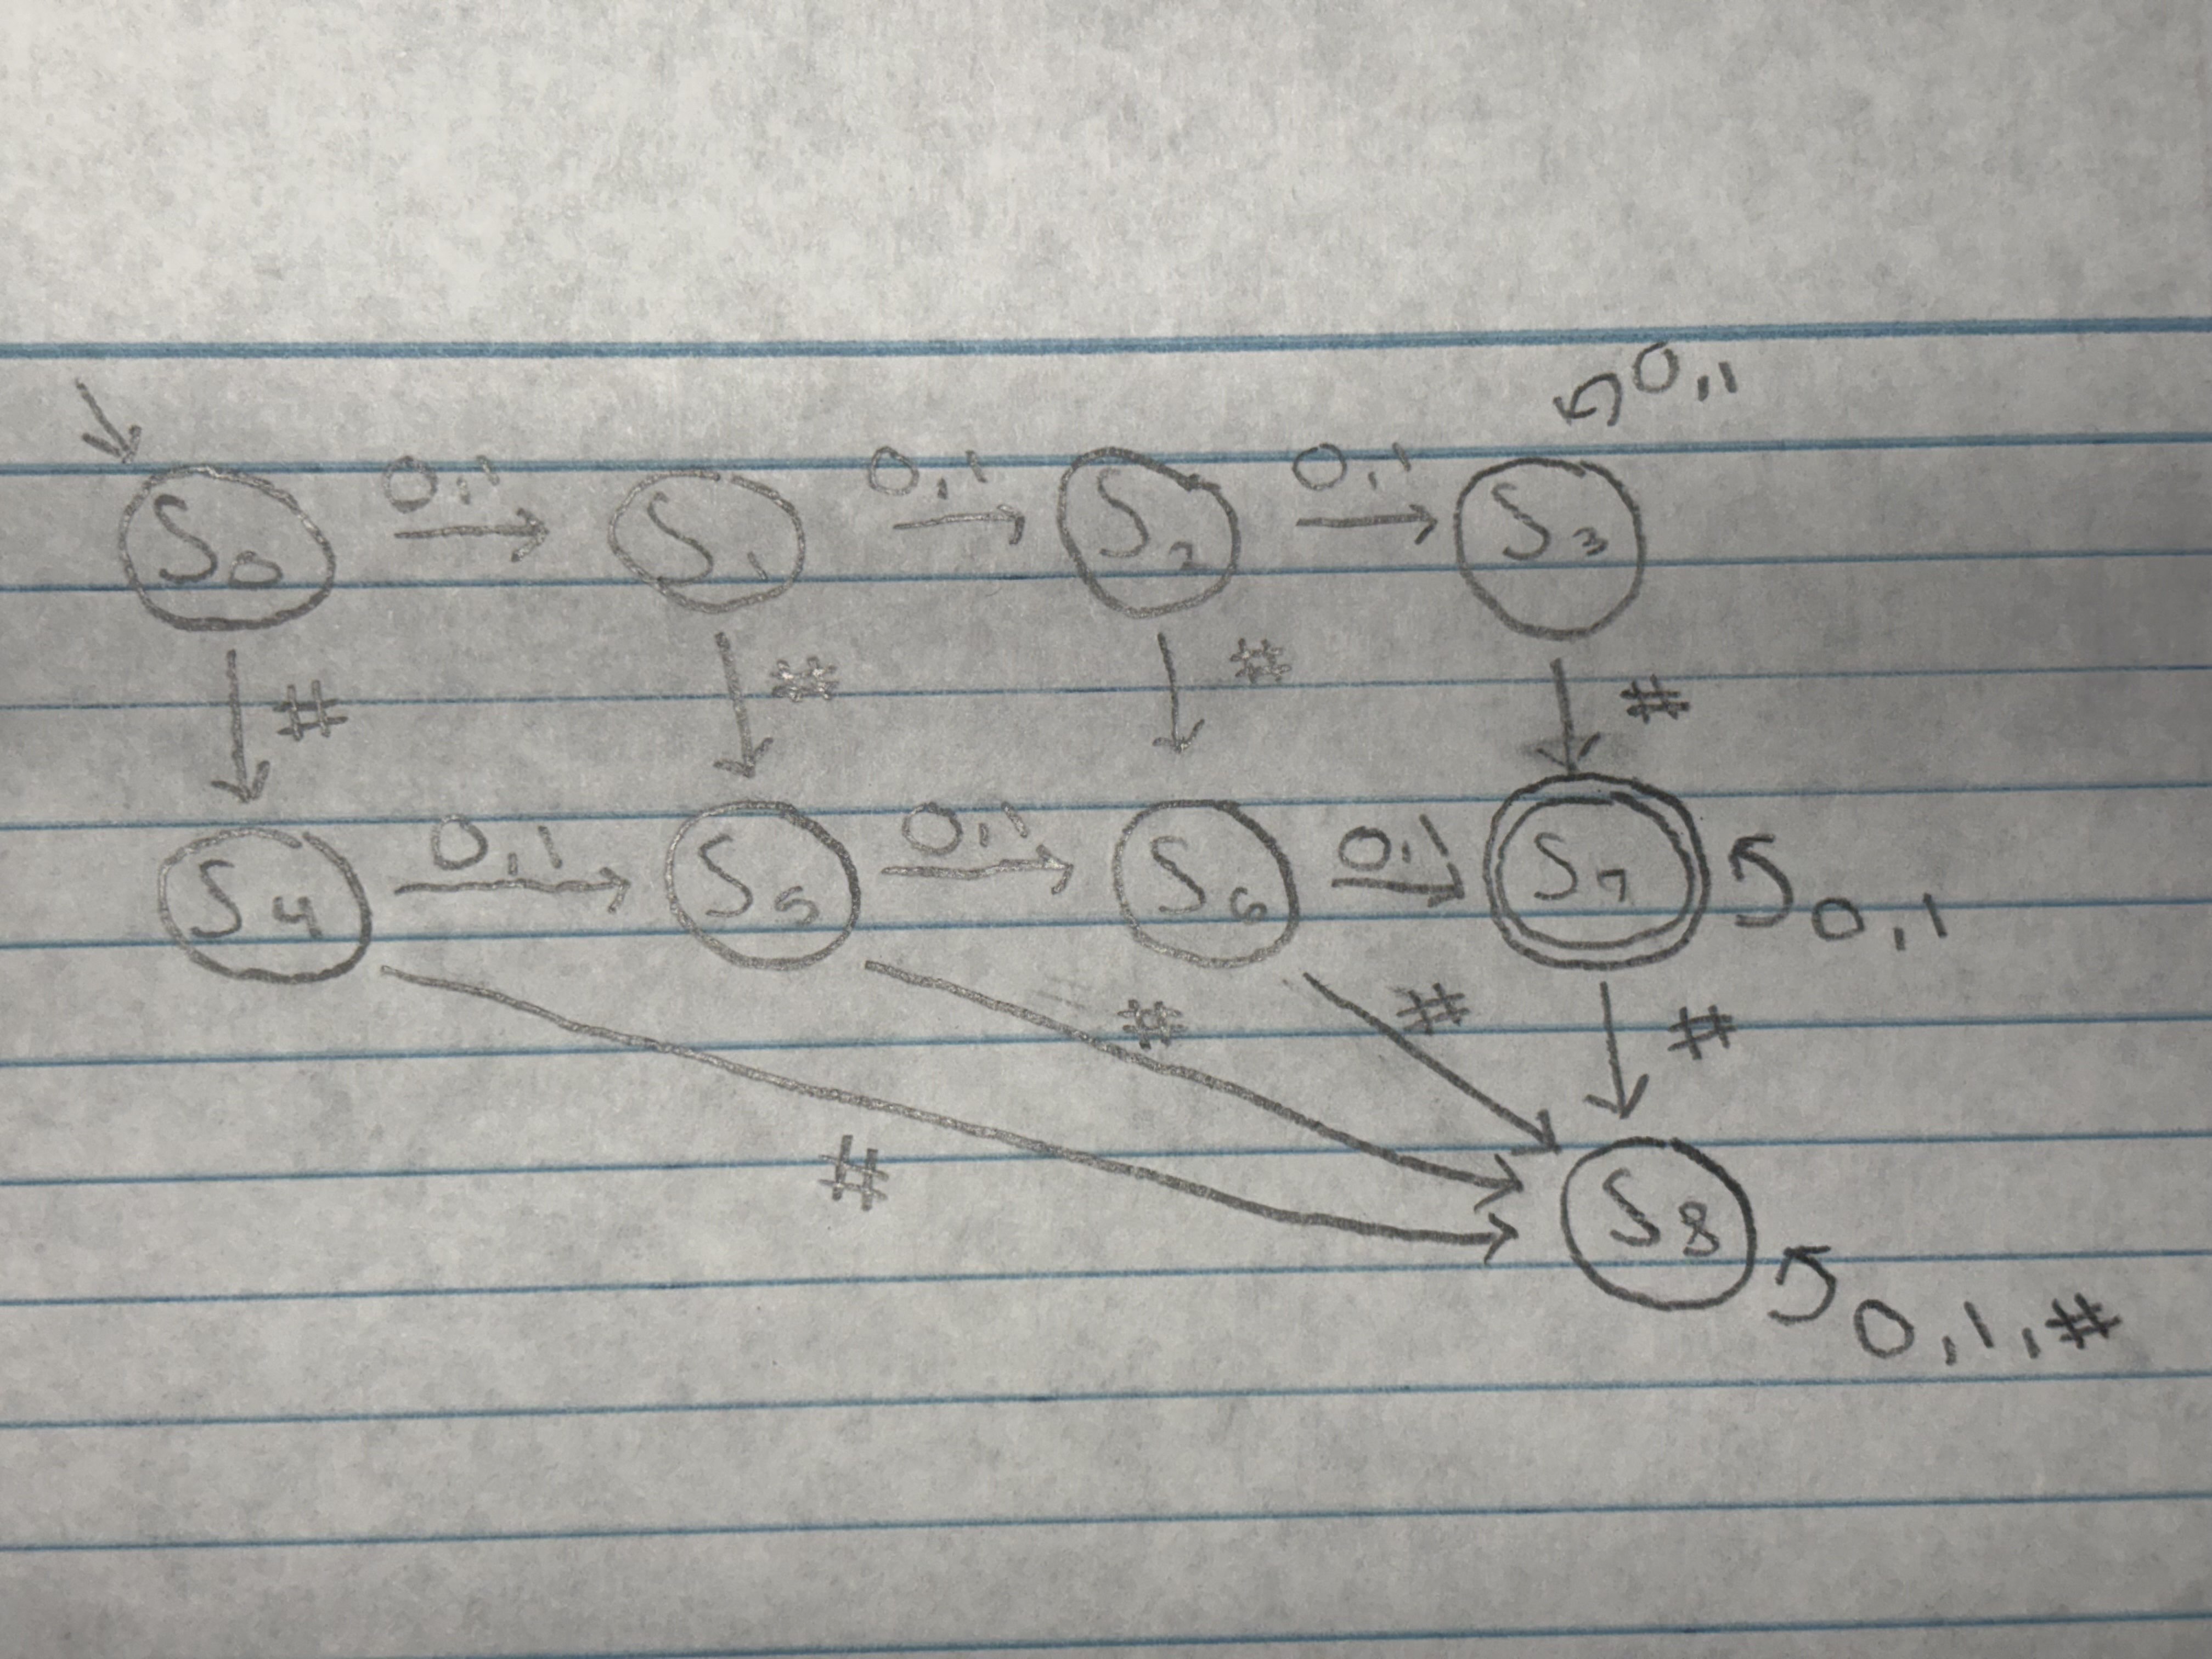 0,1
S0 0,1 S1 0,1 S2 0,1 S3
# # # #
S4 0,1 S5 0,1 S6 0,1 S7 0,1
# # # #
S8
0,1,#